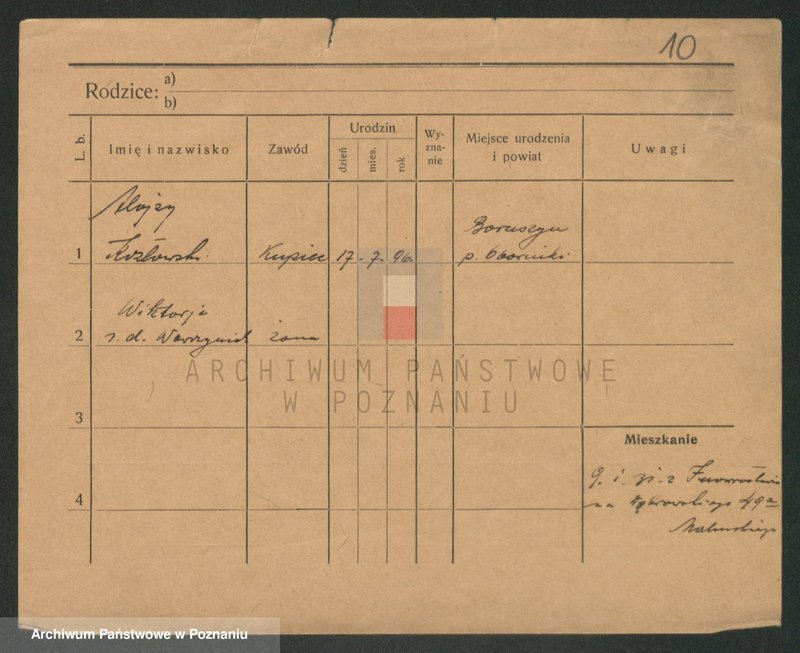 10
Rodzice: a)
b)
L. b.
Imię i nazwisko
Zawód
Urodzin
dzień
mies.
rok
Wy-
zna-
nie
Miejsce urodzenia
i powiat
Uwagi
Alojzy
1 Kozłowski Kupiec 17 - 7 - 96.
Boruszyn
p. Oborniki
Wiktorja
2 z. d. Wawrzyniak żona
3
4
Mieszkanie
na Dąbrowskiego 49a
ARCHIWUM PAŃSTWOWE
W POZNANIU
Archiwum Państwowe w Poznaniu